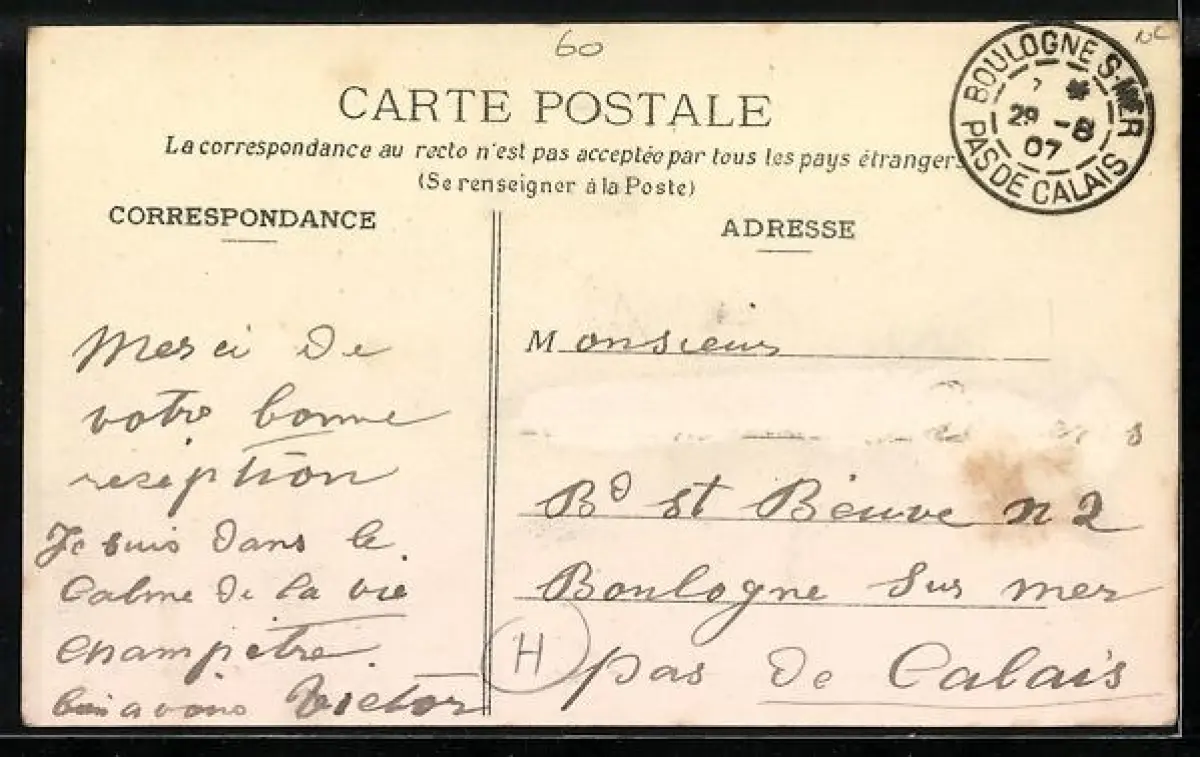 60
CARTE POSTALE
La correspondance au recto n'est pas acceptée par tous les pays étrangers
(Se renseigner à la Poste)
BOULOGNE S-MER
29 -8
07
PAS DE CALAIS
CORRESPONDANCE
Merci de
votre bonne
reseption
Je suis dans le
Calme de la vie
champêtre.
bien a vous Victor
ADRESSE
Monsieur
Bd st Beuve n 2
Boulogne sur mer
H
pas de Calais